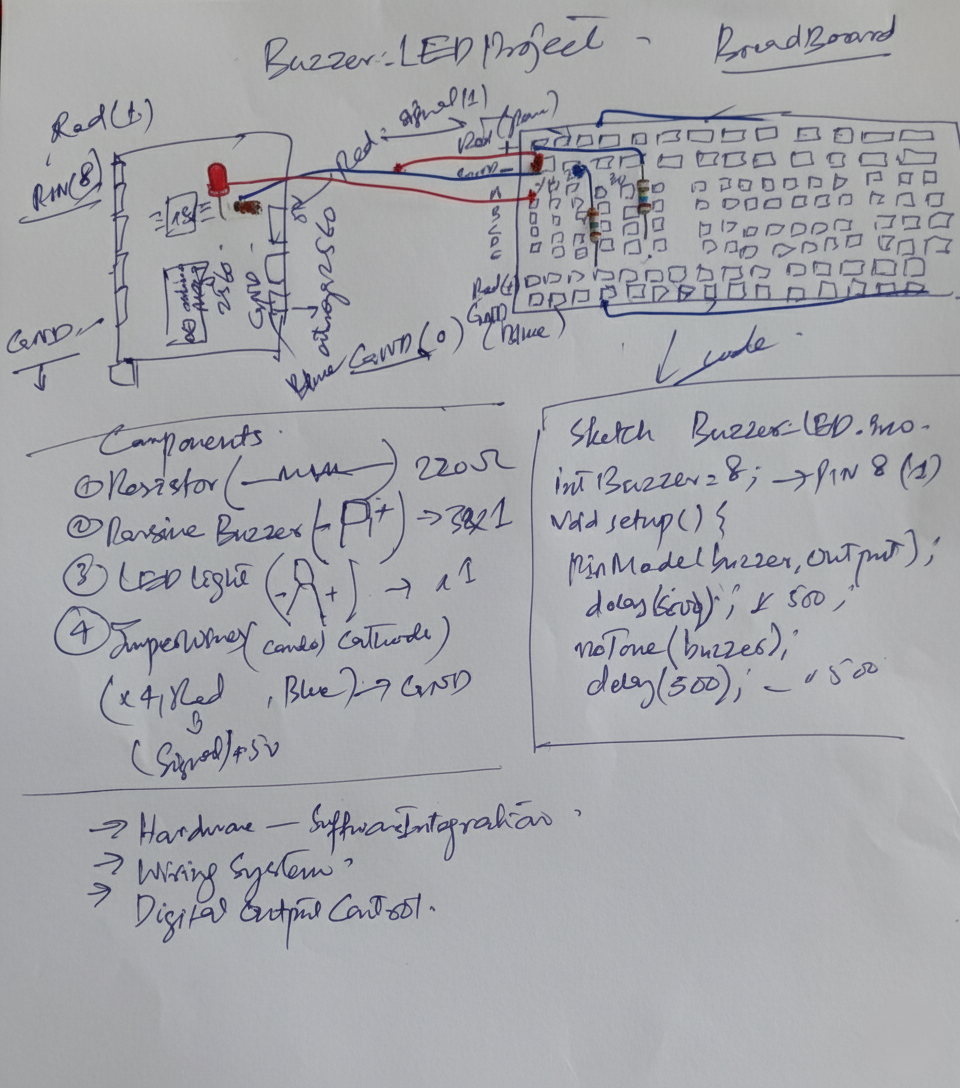 Buzzer-LED Project - BreadBoard
Red(+)
PIN(8)
Red: signal(1)
Red
+
GND -
A
B
C
D
E
Red(+)
GND
(Blue)
2560
GND
Blue GND(0)
GND
code
Components
① Resistor ( ) 220Ω
② Passive Buzzer (- +) →
③ LED Light (- +) → x1
④ Jumperwires ( Cathode)
(x4, Red , Blue) → GND
(Signal)+5v
Sketch Buzzer-LED.ino.
int Buzzer = 8; → PIN 8 (1)
void setup() {
PinMode(buzzer, output);
delay(500); 500;
noTone(buzzer);
delay(500); - 500
→ Hardware — Software Integration
→ Wiring System
→ Digital Output Control.